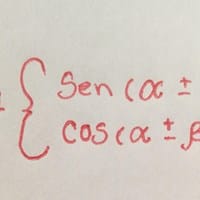 Sen (α ±
cos (α ± β